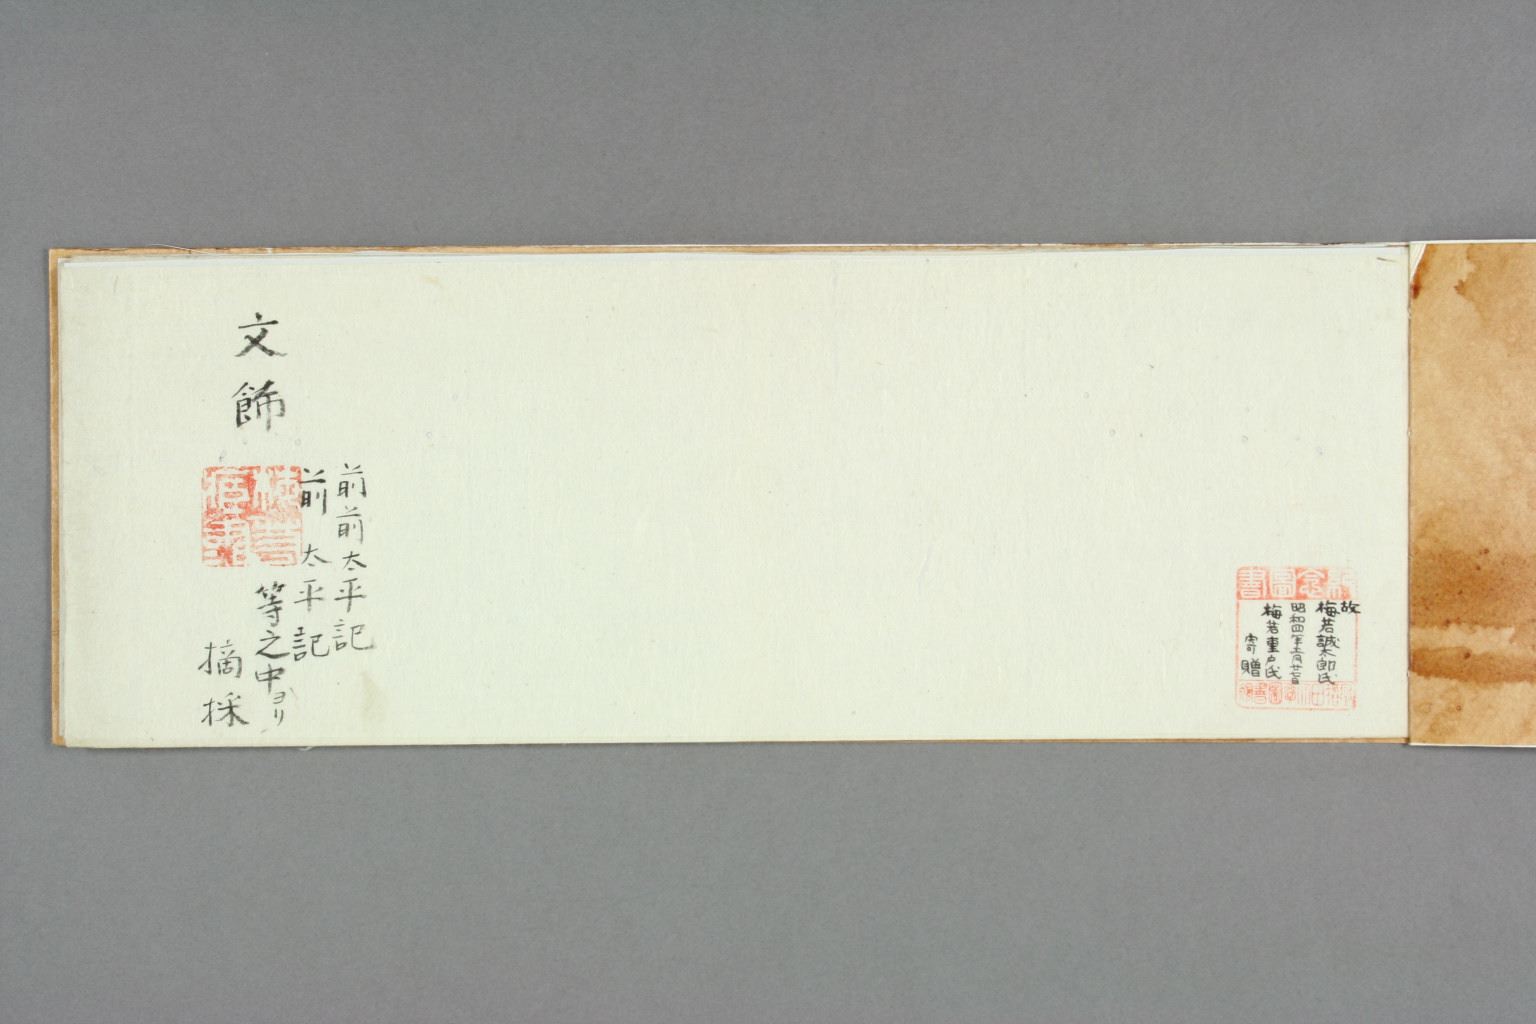 紀念圖書
故
梅若誠太郎氏
昭和四年五月廿七日
梅若重戸氏
寄贈
前前太平記
前太平記
等之中ヨリ
摘採
文飾